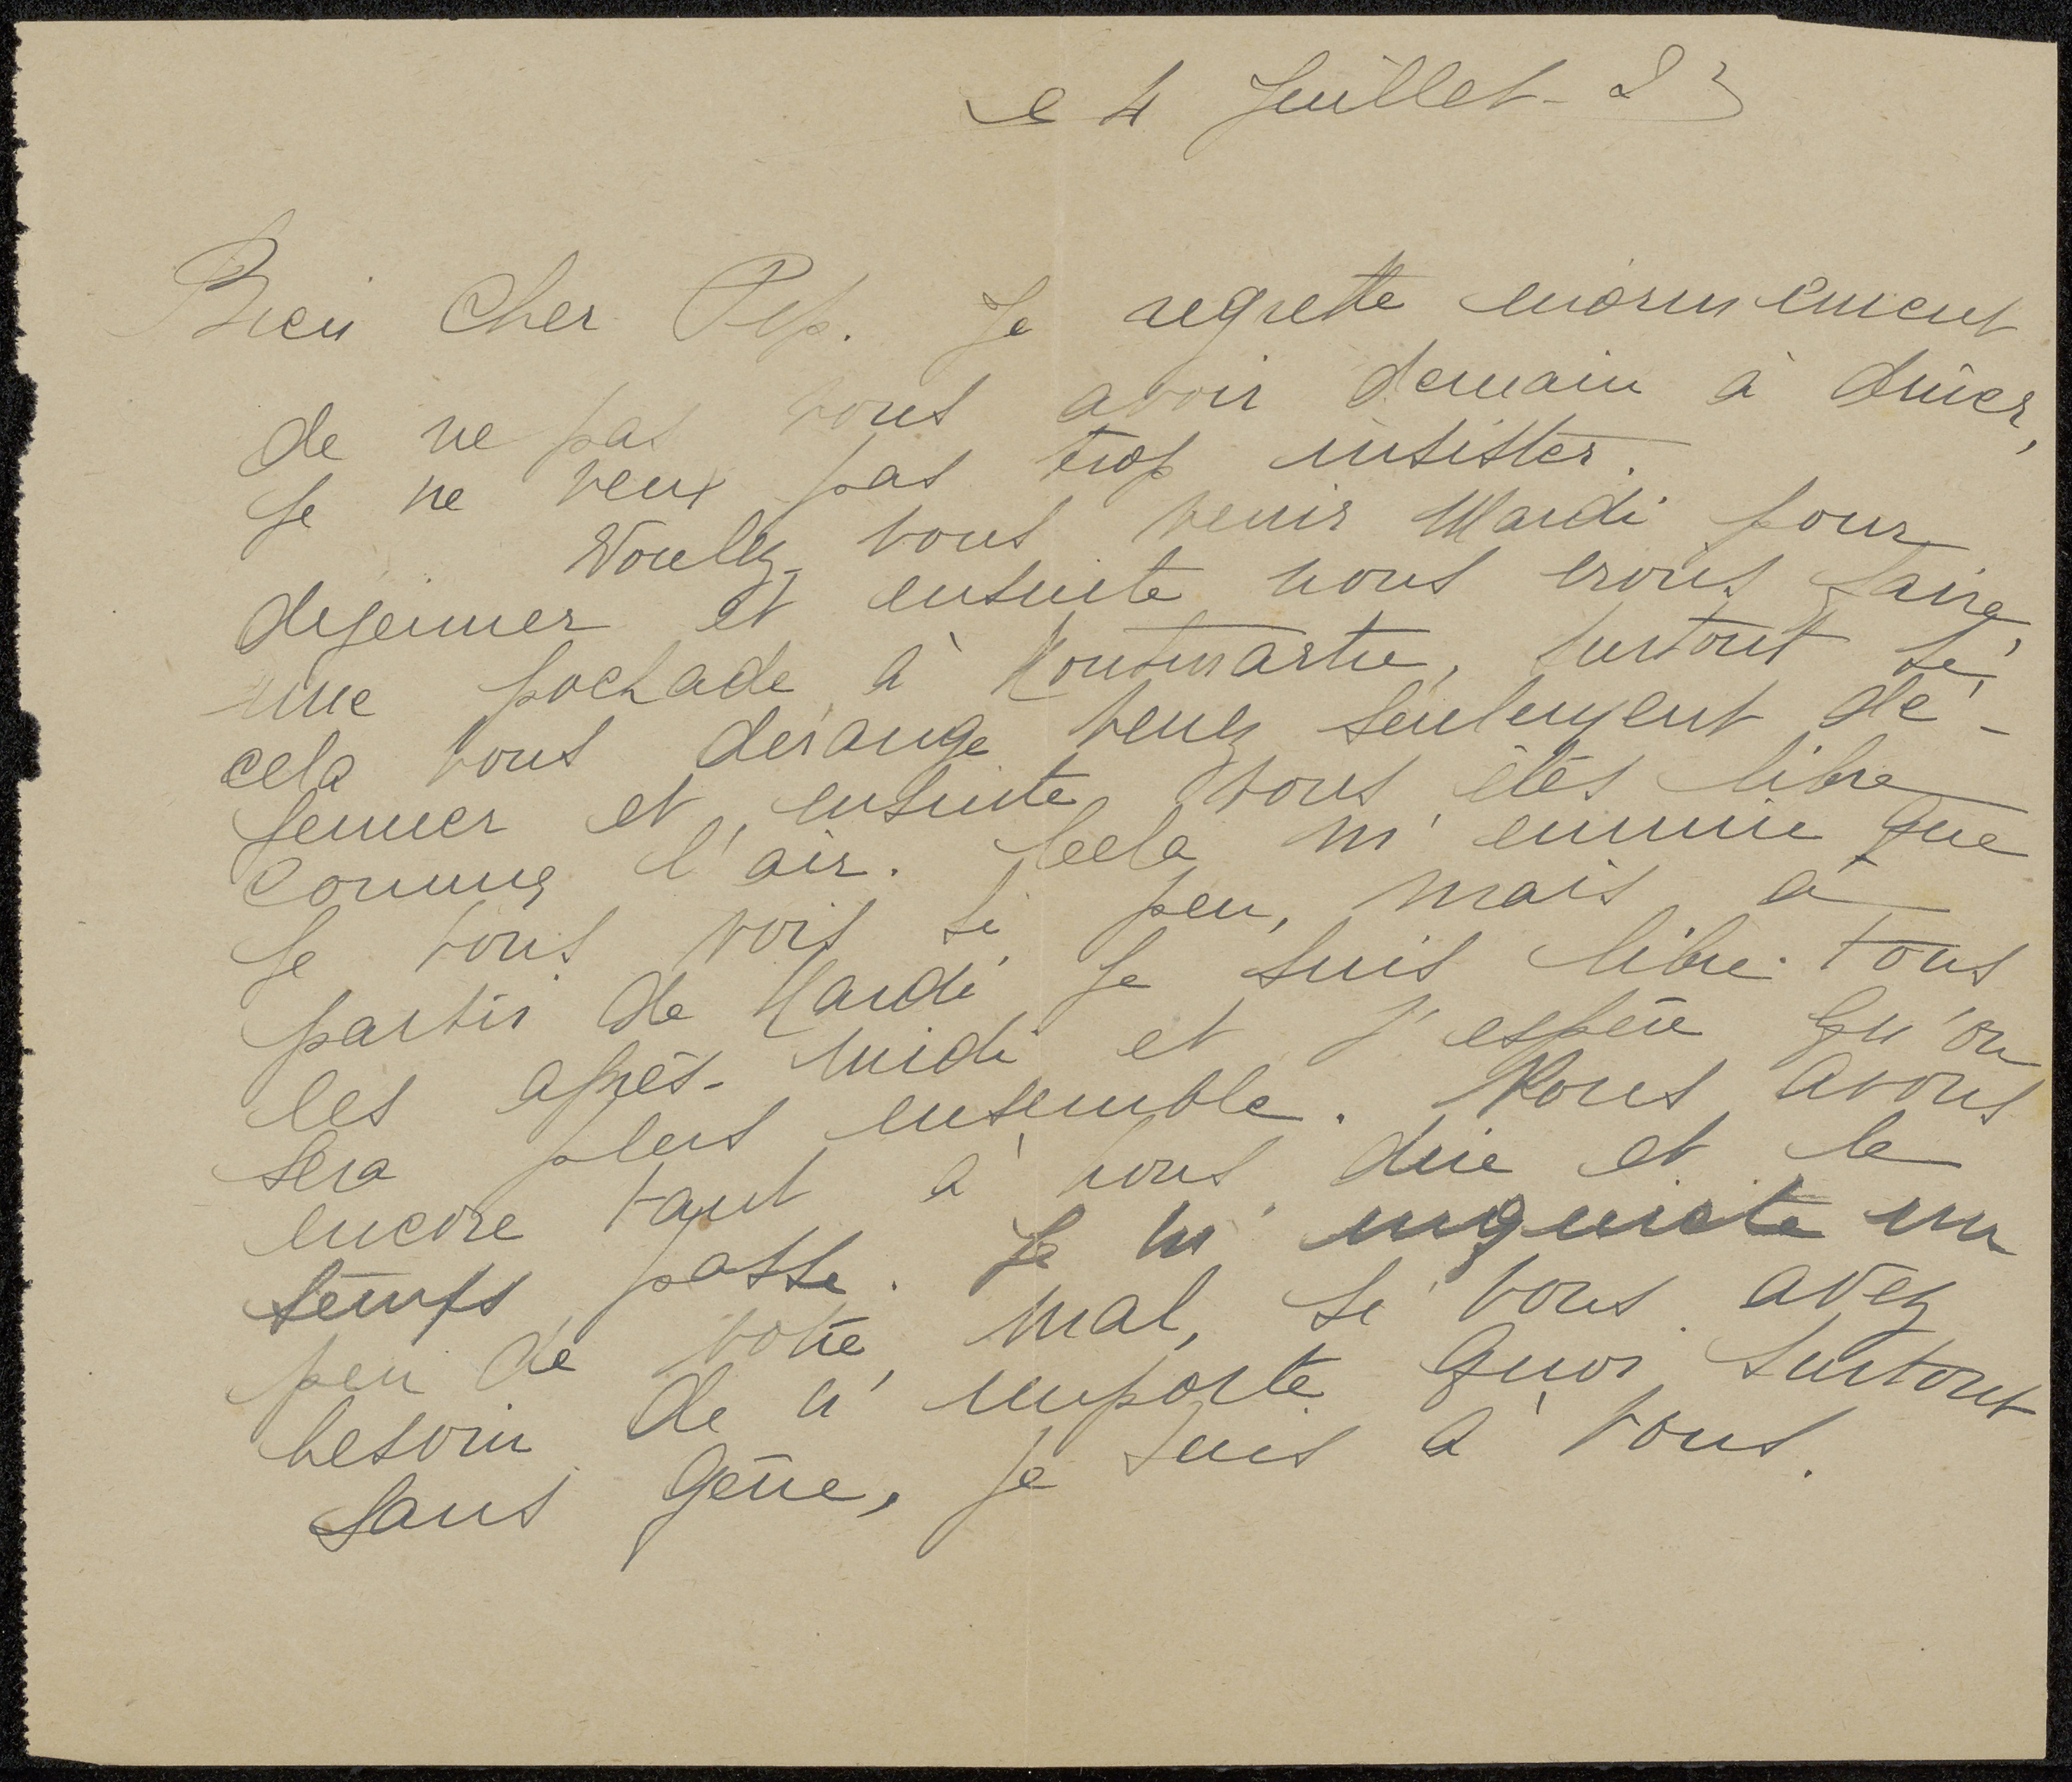 le 4 Juillet - 23
Bien Cher Pep. Je regrette enormement
de ne pas vous avoir demain à dîner,
Je ne veux pas trop insister.
Voulez-vous venir Mardi pour
dejeuner et ensuite nous irons faire
une pochade à Montmartre, surtout si
cela vous dérange venez seulement dé-
jeuner et ensuite vous êtes libre
comme l'air. Cela m'ennuie que
je vous vois si peu, mais à
partir de Mardi je suis libre tous
les après-midi et j'espère qu'on
sera plus ensemble. Nous avons
encore tant à nous dire et le
temps passe. Je m'inquiete un
peu de votre mal, si vous avez
besoin de n'importe quoi surtout
sans gêne, je suis à vous.